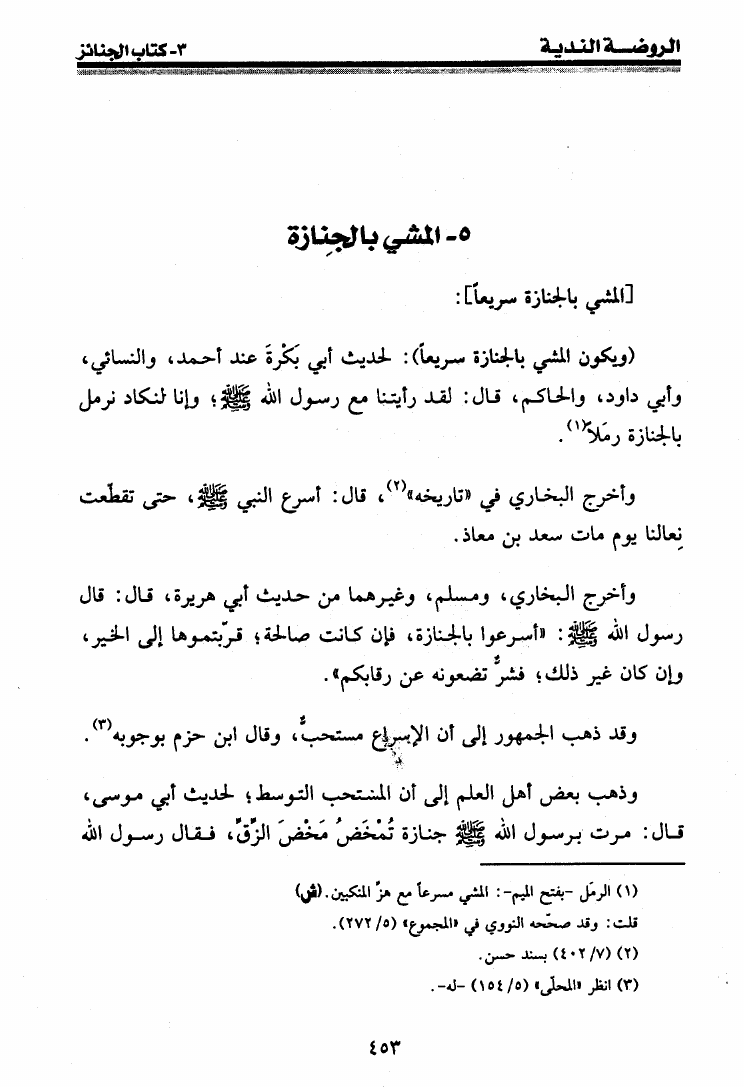 الروضة الندية
٣- كتاب الجنائز
٥- المشي بالجِنازة
[المشي بالجنازة سريعاً]:
(ويكون المشي بالجنازة سريعاً): لحديث أبي بَكْرةَ عند أحمد، والنسائي،
وأبي داود، والحاكم، قال: لقد رأيتنا مع رسول الله ﷺ؛ وإنا لنكاد نرمل
بالجنازة رمَلاً(١).
وأخرج البخاري في «تاريخه»(٢)، قال: أسرع النبي ﷺ، حتى تقطّعت
نِعالنا يوم مات سعد بن معاذ.
وأخرج البخاري، ومسلم، وغيرهما من حديث أبي هريرة، قال: قال
رسول الله ﷺ: «أسرعوا بالجنازة، فإن كانت صالحة؛ قرّبتموها إلى الخير،
وإن كان غير ذلك؛ فشرٌّ تضعونه عن رقابكم».
وقد ذهب الجمهور إلى أن الإسراع مستحبٌّ، وقال ابن حزم بوجوبه(٣).
وذهب بعض أهل العلم إلى أن المستحب التوسط؛ لحديث أبي موسى،
قال: مرت برسول الله ﷺ جنازة تُمْخَضُ مَخْضَ الزِّقِّ، فقال رسول الله
(١) الرمَل -بفتح الميم-: المشي مسرعاً مع هزّ المنكبين. (ش)
قلت: وقد صحّحه النووي في «المجموع» (٥/ ٢٧٢).
(٢) (٧/ ٤٠٢) بسند حسن.
(٣) انظر «المحلّى» (٥/ ١٥٤) -له-.
٤٥٣